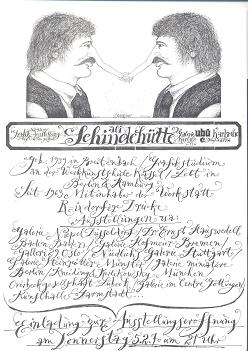 Schindehütte
Galerie ubu Karlsruhe
Geb. 1939 in Breitenbach / Grafikstudium
an der Werkkunstschule Kassel / Lebt in
Berlin & Hamburg
Seit 1963 Mitinhaber der Werkstatt
Rixdorfer Drucke
Ausstellungen u.a:
Galerie Niepel Düsseldorf / Dr Ernst Hauswedell
Baden Baden / Galerie Hofmeier Bremen /
Galleri 2 Oslo / Nüdlichs Galerie Stuttgart /
Galerie Steinrötter Münster / Galerie miniature
Berlin / München
Overbeckgesellschaft Lübeck / Galerie im Centre Göttingen /
Kunsthalle Darmstadt
Einladung zur Ausstellungseröffnung
am Donnerstag 5.2.70 um 21 Uhr